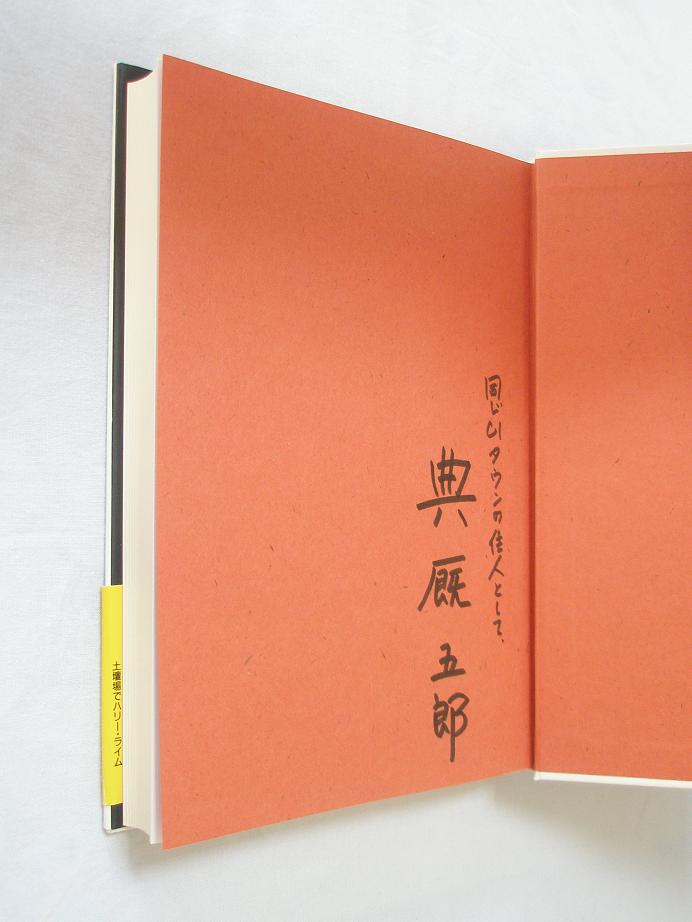 同じ山タウンの住人として、
典厩五郎
土壇場でハリー・ライム